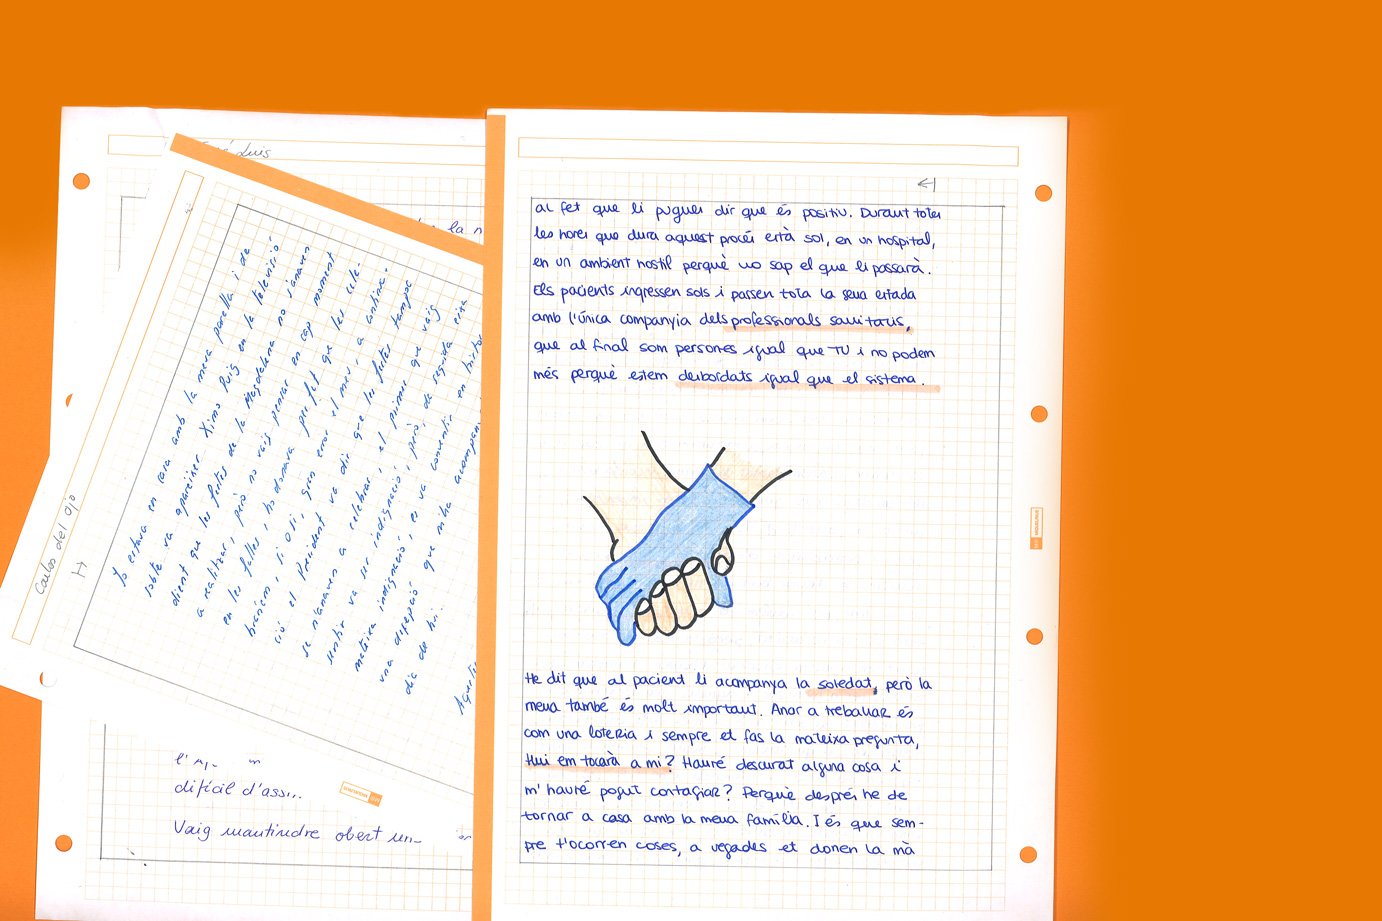 Luis
la
Carlos del ojo
Jo estava en casa amb la meva parella i de
sobte va aparèixer Ximo Puig en la televisió
dient que les festes de la Magdalena no s'anaven
a realitzar, però no vaig pensar en cap moment
en les falles, ho donava per fet que les cele-
bràrem, i oli, gran error el meu, a contina-
ció el President va dir que les festes tampoc
se n'anaven a celebrar, el primer que vaig
sentir va ser indignació, però, de seguida eixa
mateixa indignació, es va convertir en
una decepció que m'ha
dia de hui.
difícil d'
Vaig mantindre obert un
al fet que li pugues dir que és positiu. Durant totes
les hores que dura aquest procés està sol, en un hospital,
en un ambient hostil perquè no sap el que li passarà.
Els pacients ingressen sols i passen tota la seua estada
amb l'única companyia dels professionals sanitaris,
que al final som persones igual que TU i no podem
més perquè estem desbordats igual que el sistema.
He dit que al pacient li acompanya la soledat, però la
meua també és molt important. Anar a treballar és
com una loteria i sempre et fas la mateixa pregunta,
Hui em tocarà a mi? Hauré descurat alguna cosa i
m'hauré pogut contagiar? Perquè després he de
tornar a casa amb la meua família. I és que sem-
pre t'ocorren coses, a vegades et donen la mà